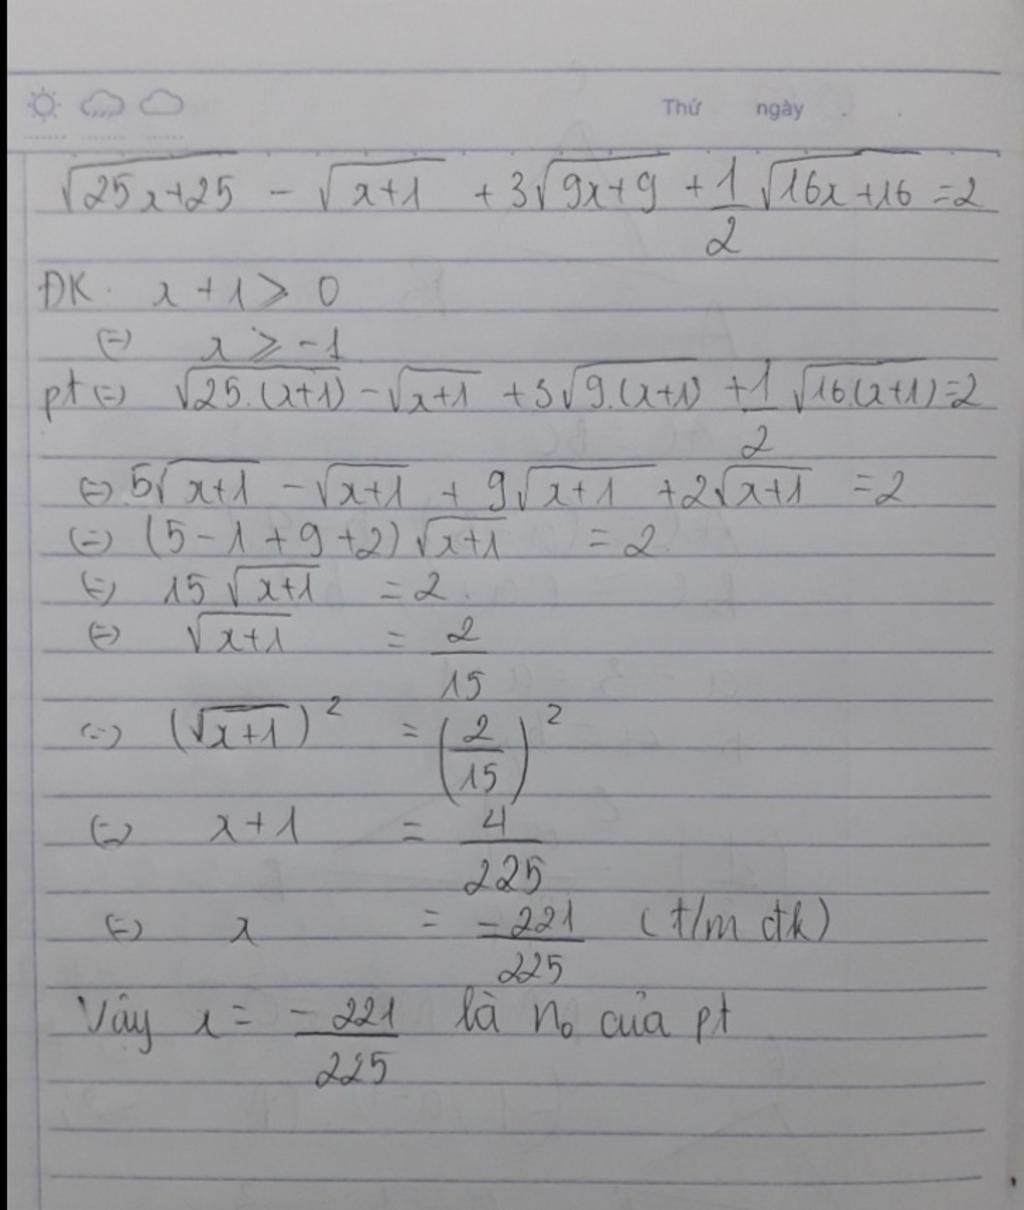 Thứ ngày
√25x+25 - √x+1 + 3√9x+9 + 1/2 √16x+16 = 2
ĐK. x + 1 ⩾ 0
(=) x ⩾ -1
pt (=) √25.(x+1) - √x+1 + 3√9.(x+1) + 1/2 √16.(x+1) = 2
(=) 5√x+1 - √x+1 + 9√x+1 + 2√x+1 = 2
(=) (5 - 1 + 9 + 2) √x+1 = 2
(=) 15 √x+1 = 2.
(=) √x+1 = 2/15
(=) (√x+1)² = (2/15)²
(=) x + 1 = 4/225
(=) x = -221/225 (t/m đk)
Vậy x = -221/225 là n₀ của pt